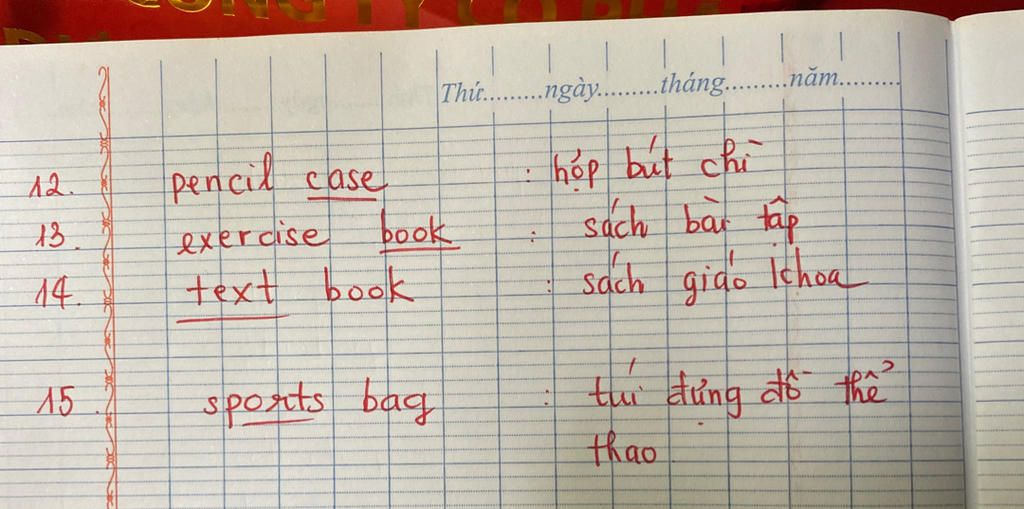 CÔNG TY CỔ PHẦN
Thứ.........ngày.........tháng.........năm.........
12. pencil case : hộp bút chì
13. exercise book : sách bài tập
14. text book : sách giáo khoa
15. sports bag : túi đựng đồ thể
thao